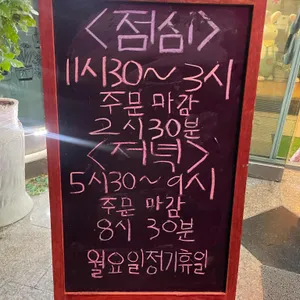 <점심>
11시30~3시
주문 마감
2시30분
<저녁>
5시30~9시
주문 마감
8시 30분
월요일정기휴일